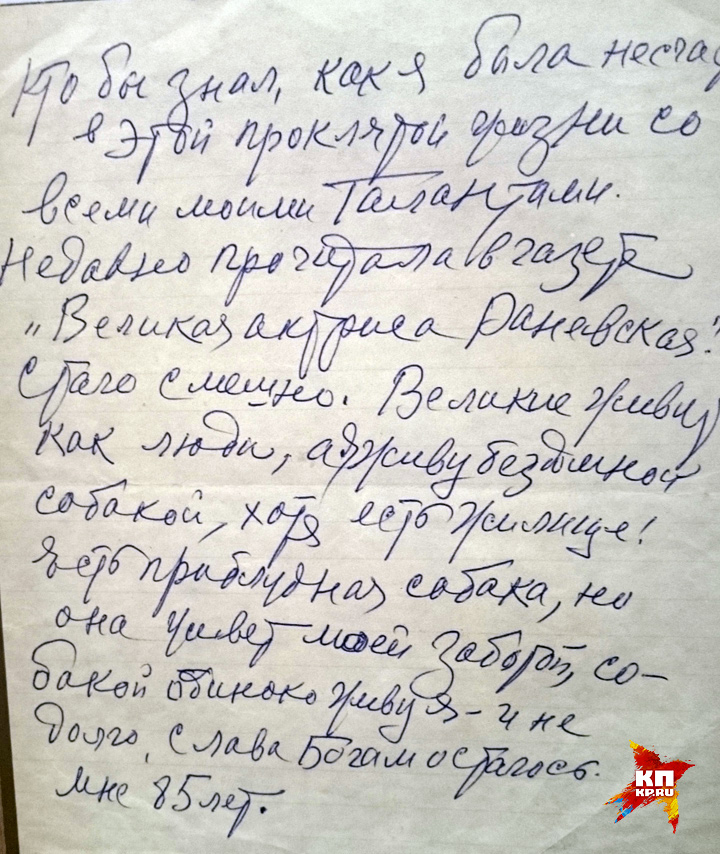 Кто бы знал, как я была несча
в этой проклятой жизни со
всеми моими талантами.
Недавно прочитала в газете
„Великая актриса Раневская".
Стало смешно. Великие живут
как люди, а я живу бездомной
собакой, хотя есть жилище!
Есть приблудная собака, но
она живет моей заботой, со-
бакой одиноко живу я - и не
долго, слава Богам осталось.
мне 85 лет.
КП
KP.RU